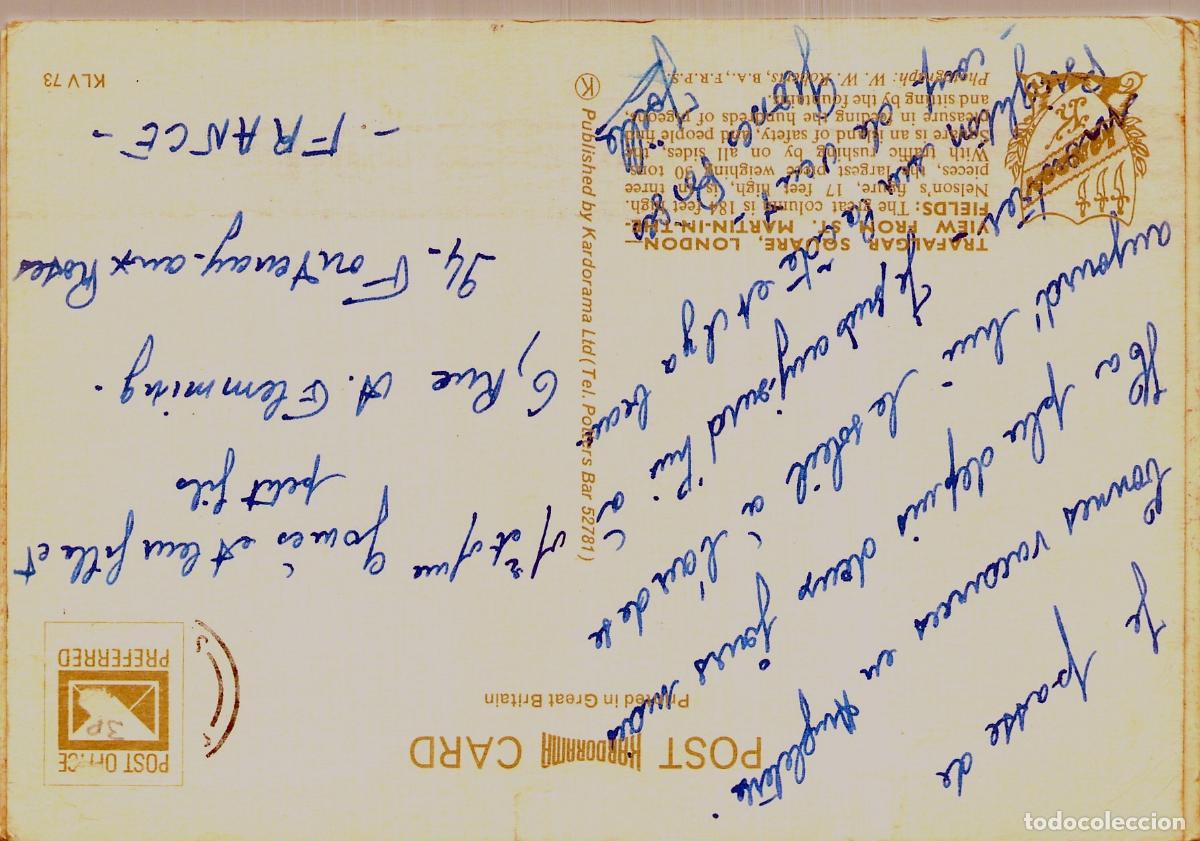 POST KARDORAMA CARD
Printed in Great Britain
POST OFFICE
PREFERRED
3P
Je passe de
bonnes vacances en Angleterre
Il a plu depuis deux jours mais
aujourd'hui - le soleil a l'air de se
- Je suis aujourd'hui à
Brighton sur la côte et il y a beau-
coup de vent -
Grosses Bises
Joëlle
Mr et Mme Gomès et leur fille et
petit fils
6, Rue A. Flemming.
94 - Fontenay-aux Roses
- FRANCE -
TRAFALGAR SQUARE, LONDON—
VIEW FROM ST. MARTIN-IN-THE-
FIELDS: The great column is 184 feet high.
Nelson's figure, 17 feet high, is in three
pieces, the largest piece weighing 30 tons.
With traffic rushing by on all sides, the
Square is an island of safety, and people find
pleasure in feeding the hundreds of pigeons,
and sitting by the fountains.
Photograph: W. W. Roberts, B.A., F.R.P.S.
K Published by Kardorama Ltd (Tel. Potters Bar 52781)
KLV 73
todocoleccion